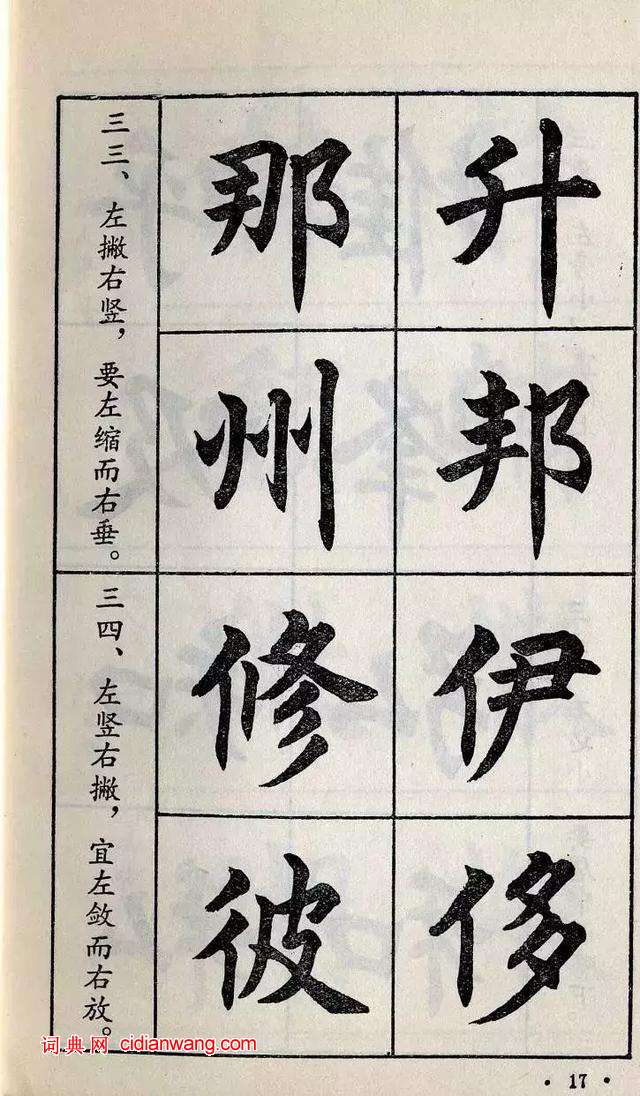 升
那
邦
州
三三、左撇右竖，要左缩而右垂。
伊
修
侈
彼
三四、左竖右撇，宜左敛而右放。
词典网 cidianwang.com
• 17 •